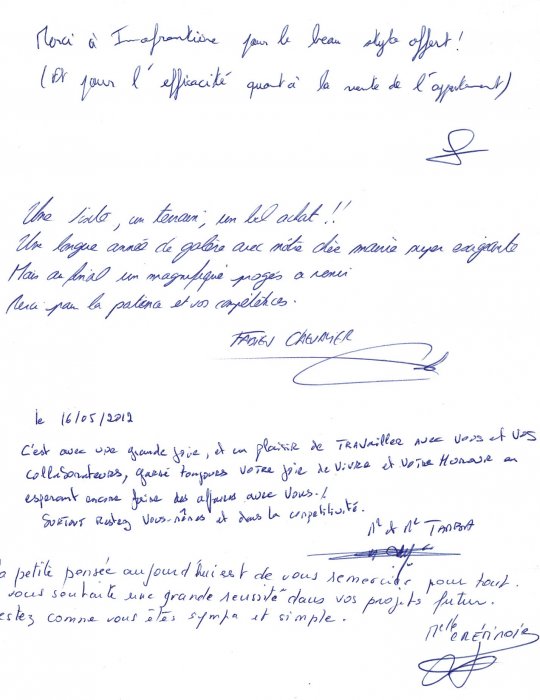 Merci à Immofrontière pour le beau stylo offert !
(Et pour l'efficacité quant à la vente de l'appartement)
Une visite, un terrain, un bel achat !!
Une longue année de galère avec nôtre chère mairie super exigeante
Mais au final un magnifique projet a venir
Merci pour la patience et vos compétences.
FABIEN
le 16/05/2012
C'est avec une grande joie, et un plaisir de TRAVAILLER AVEC VOUS et VOS
collaborateurs, gardé toujours votre joie de vivre et votre Humour en
esperant encore faire des affaires avec vous.!
SURTOUT Restez vous-mêmes et dans la competitivité.
Mr & Me
a petite pensée aujourd'hui est de vous remercier pour tout.
vous souhaite une grande réussité dans vos projets futur.
estez comme vous êtes sympa et simple.
Melle